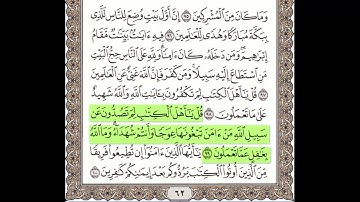 وَمَا كَانَ مِنَ ٱلْمُشْرِكِينَ ٩٥ إِنَّ أَوَّلَ بَيْتٍ وُضِعَ لِلنَّاسِ لَلَّذِى
بِبَكَّةَ مُبَارَكًا وَهُدًى لِّلْعَٰلَمِينَ ٩٦ فِيهِ ءَايَٰتٌۢ بَيِّنَٰتٌ مَّقَامُ
إِبْرَٰهِيمَ ۖ وَمَن دَخَلَهُۥ كَانَ ءَامِنًا ۗ وَلِلَّهِ عَلَى ٱلنَّاسِ حِجُّ ٱلْبَيْتِ
مَنِ ٱسْتَطَاعَ إِلَيْهِ سَبِيلًا ۚ وَمَن كَفَرَ فَإِنَّ ٱللَّهَ غَنِىٌّ عَنِ ٱلْعَٰلَمِينَ
٩٧ قُلْ يَٰٓأَهْلَ ٱلْكِتَٰبِ لِمَ تَكْفُرُونَ بِـَٔايَٰتِ ٱللَّهِ وَٱللَّهُ شَهِيدٌ
عَلَىٰ مَا تَعْمَلُونَ ٩٨ قُلْ يَٰٓأَهْلَ ٱلْكِتَٰبِ لِمَ تَصُدُّونَ عَن
سَبِيلِ ٱللَّهِ مَنْ ءَامَنَ تَبْغُونَهَا عِوَجًا وَأَنتُمْ شُهَدَآءُ ۗ وَمَا ٱللَّهُ
بِغَٰفِلٍ عَمَّا تَعْمَلُونَ ٩٩ يَٰٓأَيُّهَا ٱلَّذِينَ ءَامَنُوٓا۟ إِن تُطِيعُوا۟ فَرِيقًا
مِّنَ ٱلَّذِينَ أُوتُوا۟ ٱلْكِتَٰبَ يَرُدُّوكُم بَعْدَ إِيمَٰنِكُمْ كَٰفِرِينَ ١٠٠
٦٢